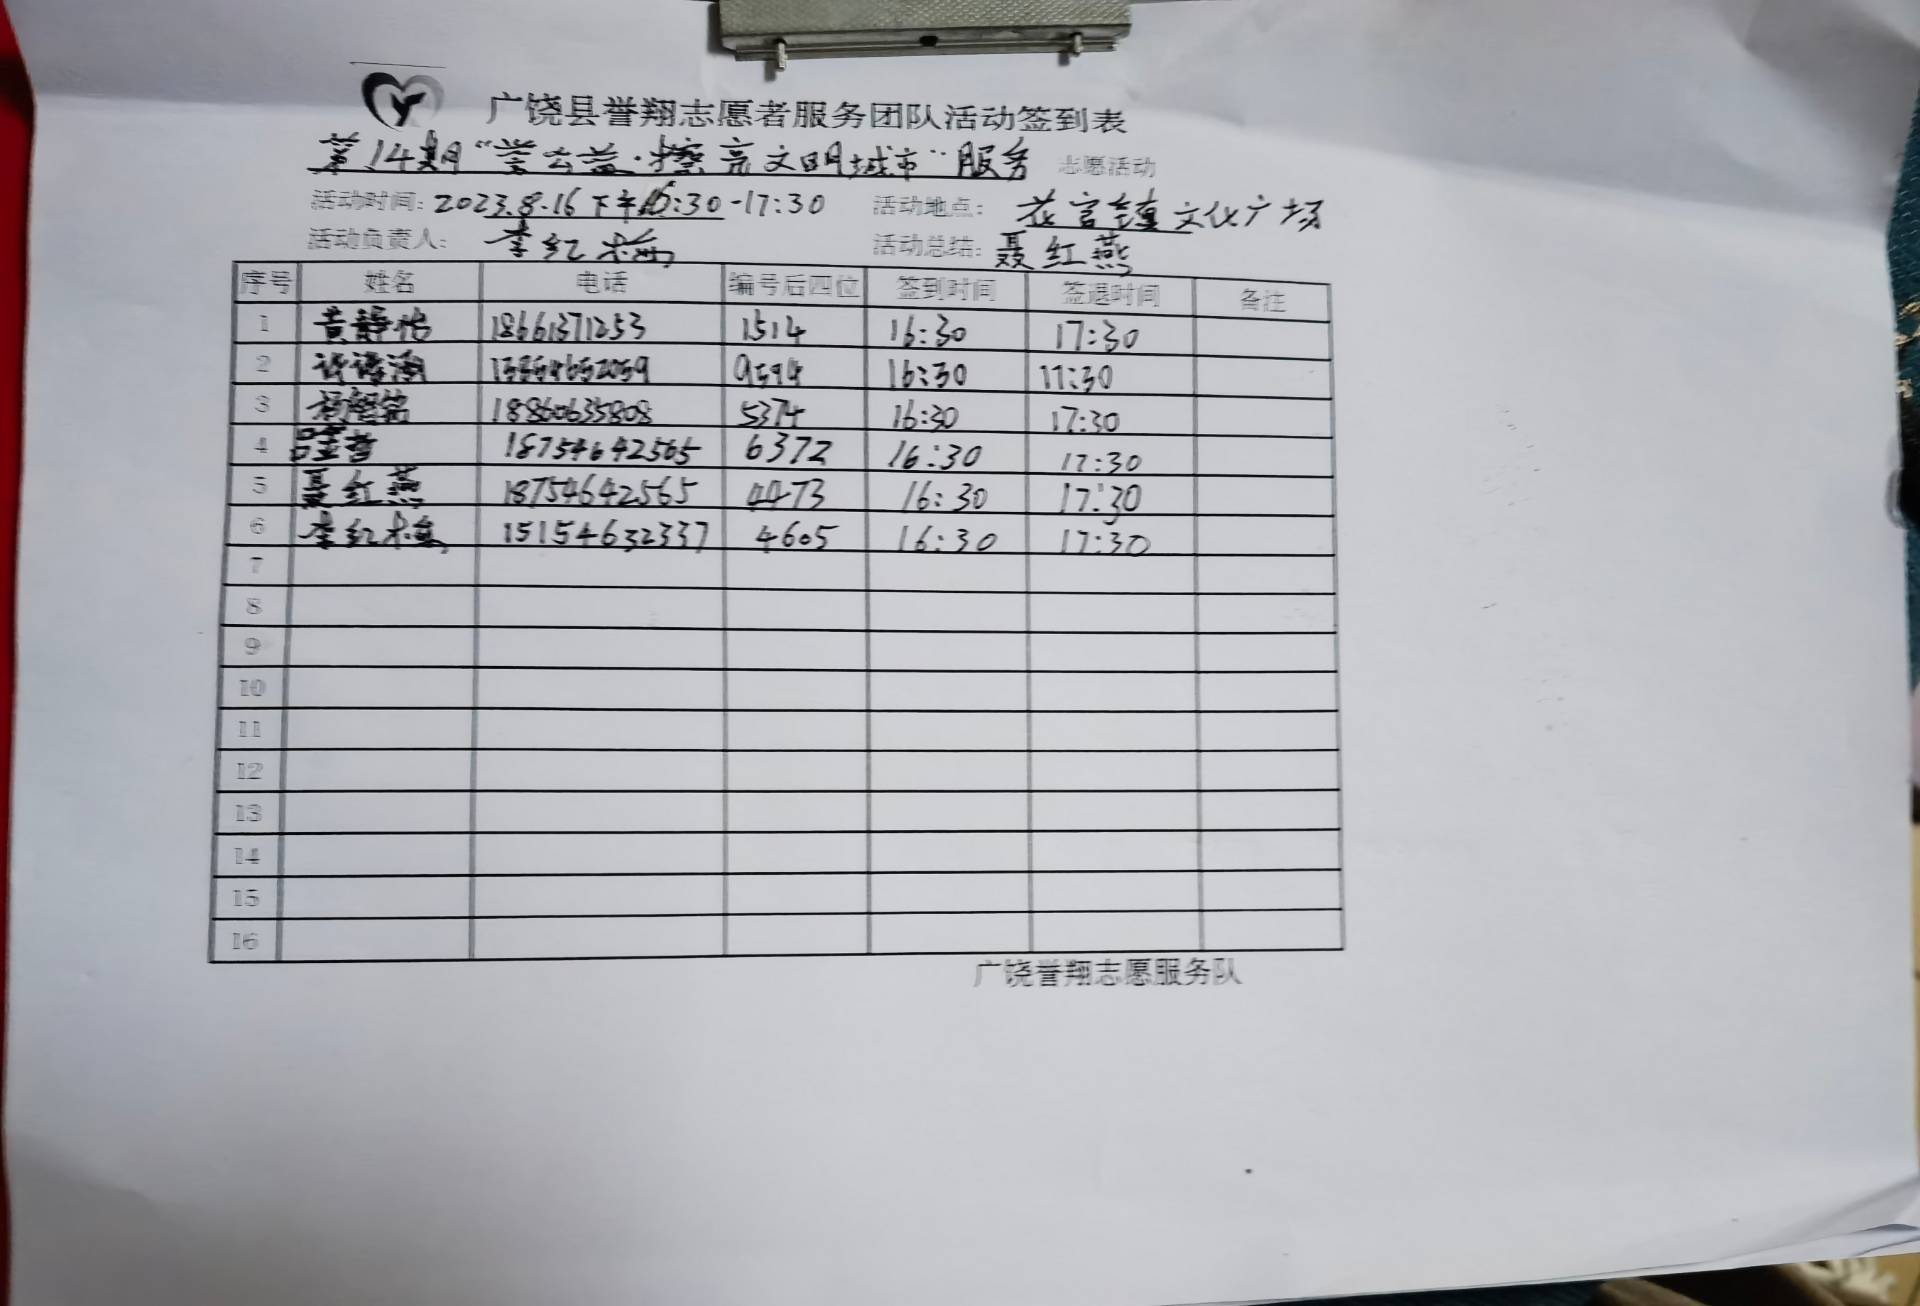 广饶县誉翔志愿者服务团队活动签到表
第14期“誉公益·擦亮文明城市”服务 志愿活动
活动时间: 2023.8.16 下午16:30-17:30 活动地点: 花官镇文化广场
活动负责人: 李红梅 活动总结: 聂红燕
序号 姓名 电话 编号后四位 签到时间 签退时间 备注
1 黄静怡 18661371253 1514 16:30 17:30
2 9594 16:30 17:30
3 18860635808 5374 16:30 17:30
4 18754642565 6372 16:30 17:30
5 聂红燕 18754642565 4473 16:30 17:30
6 李红梅 15154632337 4605 16:30 17:30
7
8
9
10
11
12
13
14
15
16
广饶誉翔志愿服务队